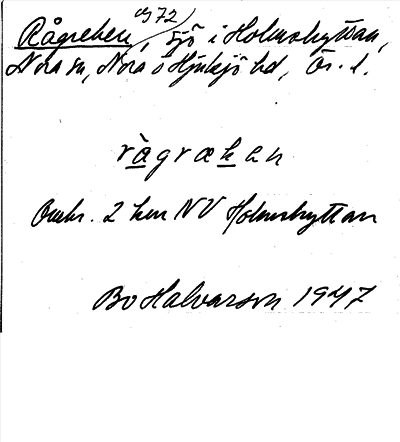 972
Rågreken, sjö i Holmshyttan,
Nora sn, Nora o Hjulsjö bd, Ör. l.
ràgrækan
Omkr. 2 km NV Holmshyttan
Bo Halvarson 1947